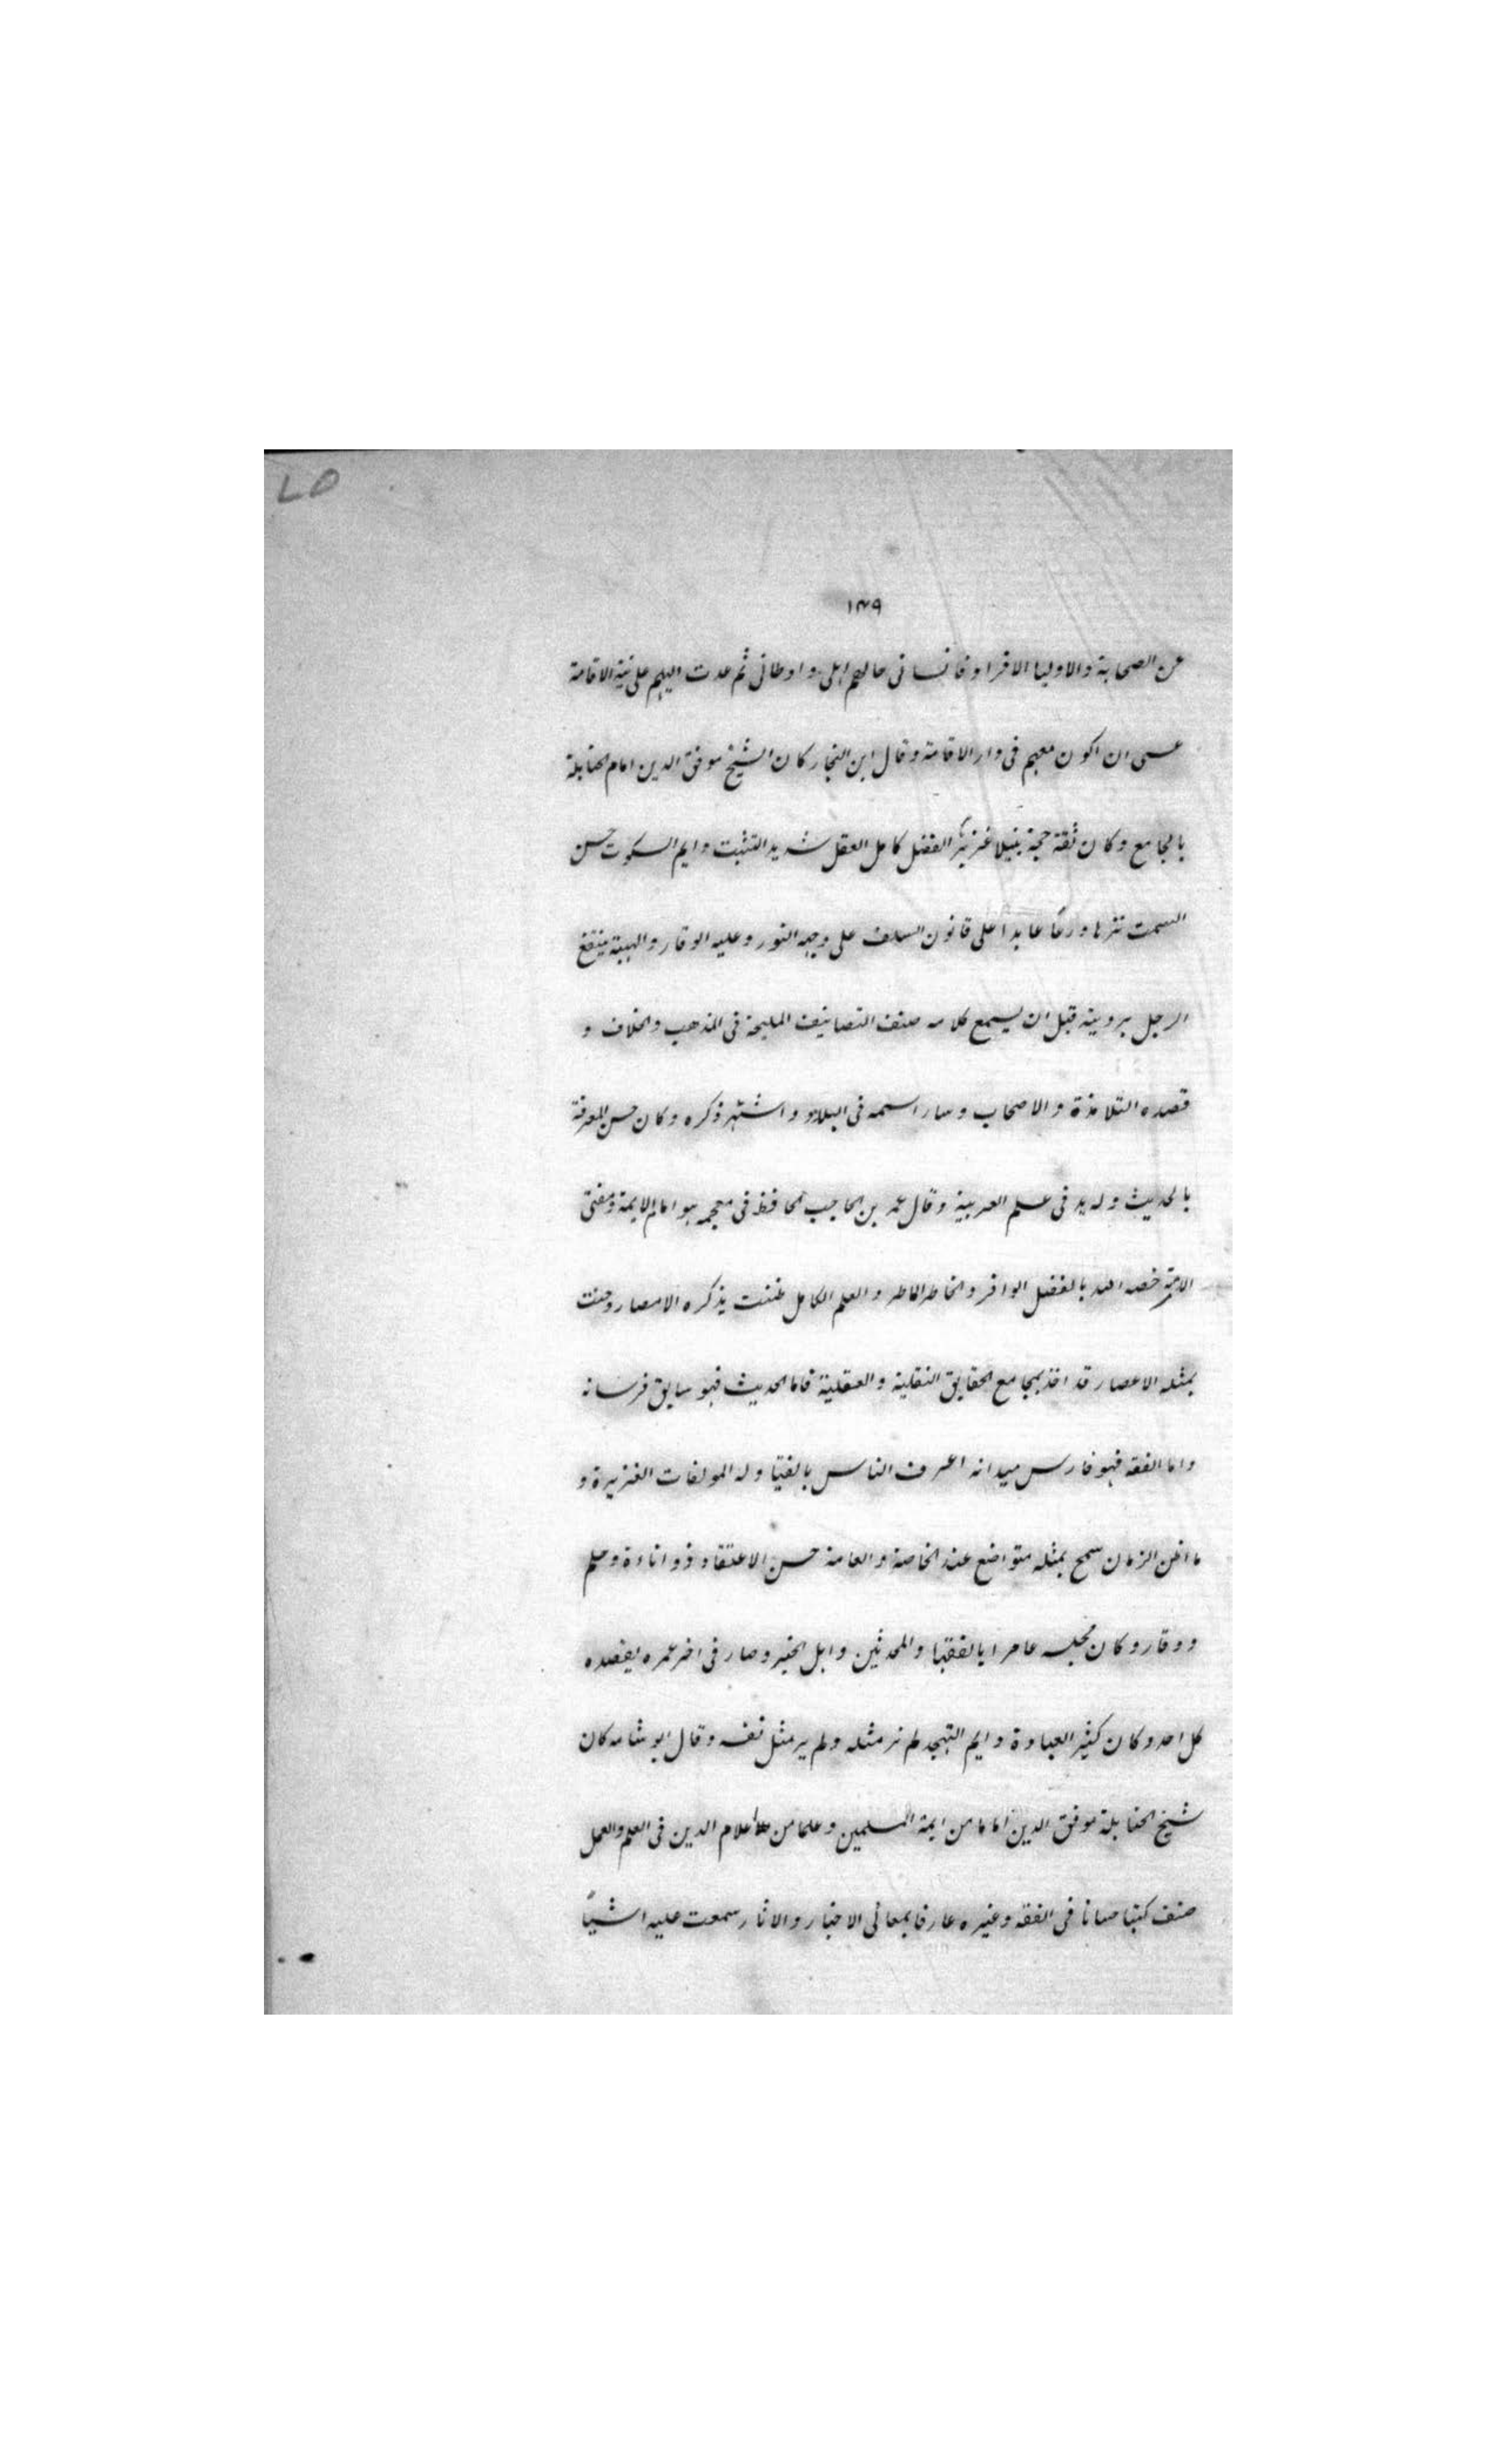 ۷۵
۱۴۹
عن الصحابة والاوليا الافراد فانسانى حالهم اهلى واوطانى ثم عدت اليهم على نية الاقامة
عسى ان اكون معهم فى دار الاقامة وقال ابن النجار كان الشيخ موفق الدين امام الحنابلة
بالجامع وكان ثقة حجة نبيلا غزير الفضل كامل العقل شديد التثبت دايم السكوت حسن
السمت نزها ورعًا عابدا على قانون السلف على وجهه النور وعليه الوقار والهيبة ينتفع
الرجل برويته قبل ان يسمع كلامه صنف التصانيف المليحة فى المذهب والخلاف و
قصده التلامذة والاصحاب وسار اسمه فى البلاد واشتهر ذكره وكان حسن المعرفة
بالحديث وله يد فى علم العربية وقال عمر بن الحاجب الحافظ فى معجمه هو امام الايمة ومفتى
الامة خصه الله بالفضل الوافر والخاطر الماطر والعلم الكامل طننت بذكره الامصار وضنت
بمثله الاعصار قد اخذ بمجامع الحقايق النقلية والعقلية فاما الحديث فهو سابق فرسانه
واما الفقه فهو فارس ميدانه اعرف الناس بالفتيا وله المولفات الغزيرة و
ما اظن الزمان سمح بمثله متواضع عند الخاصة والعامة حسن الاعتقاد ذو اناءة وحلم
ووقار وكان مجلسه عامرا بالفقها والمحدثين واهل الخير وصار فى اخر عمره يقصده
كل احد وكان كثير العبادة دايم التهجد لم نر مثله ولم ير مثل نفسه وقال ابو شامه كان
شيخ الحنابلة موفق الدين اماما من ايمة المسلمين وعلما من اعلام الدين فى العلم والعمل
صنف كتبا حسانا فى الفقه وغيره عارفا بمعانى الاخبار والاثار سمعت عليه اشيًا